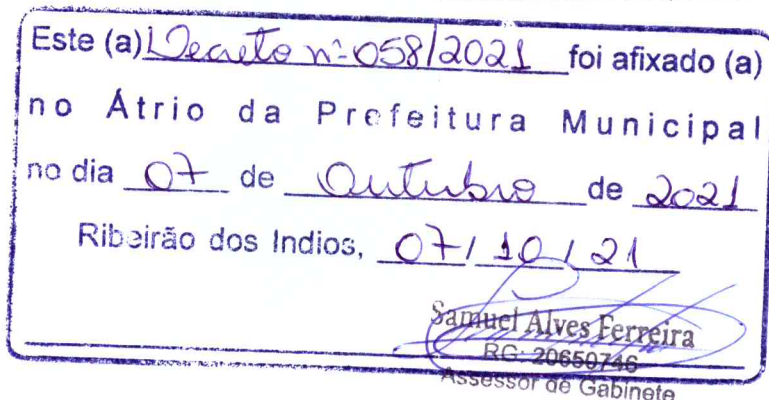 Este (a) Decreto nº 058/2021 foi afixado (a)
no Átrio da Prefeitura Municipal
no dia 07 de Outubro de 2021
Ribeirão dos Indios, 07/10/21
Samuel Alves Ferreira
RG: 20650746
Assessor de Gabinete